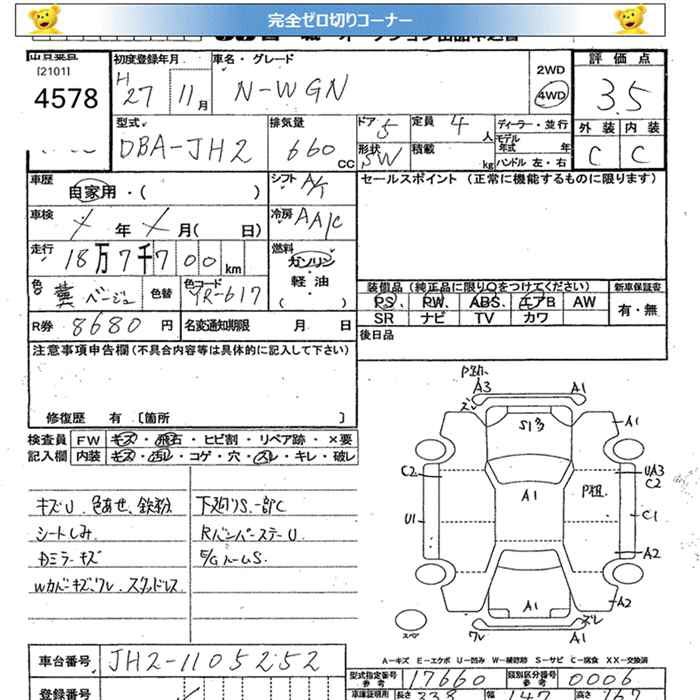 完全ゼロ切りコーナー
[2101]
4578
初度登録年月
H 27 11月
車名・グレード
N-WGN
2WD
4WD
評価点
3.5
外装 内装
C C
型式
DBA-JH2
排気量
660 CC
ドア 5
形状 SW
定員 4 人
積載 kg
ディーラー・並行
モデル年式 年
ハンドル 左・右
車歴
自家用・( )
シフト A/T
セールスポイント (正常に機能するものに限ります)
車検
年 月( 日)
冷房 AA/C
走行
18万7千700km
燃料
ガソリン
軽油
( )
色 ベージュ
色替
色コード YR-617
装備品(純正品に限り○をつけてください)
新車保証書
PS. PW. ABS. エアB AW
有・無
SR ナビ TV カワ
R券 8680円
名変通知期限 月 日
後日品
注意事項申告欄(不具合内容等は具体的に記入して下さい)
修復歴 有 [箇所 ]
検査員記入欄
FW キズ・飛石・ヒビ割・リペア跡・×要
内装 キズ・汚レ・コゲ・穴・スレ・キレ・破レ
キズU 色あせ、鉄粉
シートしみ
ミラーキズ
Wカバーキズ、ワレ.スタッドレス
下廻りS.一部C
RバンパーステーU
E/GルームS.
A3 A1
ズレ
S1多
A1
C2
UA3
C2
A1
P粗
U1
C1
A2
A1
A2
ワレ
ズレ
スペア
A-キズ E-エクボ U-凹み W-補修跡 S-サビ C-腐食 XX-交換済
車台番号 JH2-1105252
型式指定番号参考 17660
類別区分番号参考 0006
登録番号
車庫証明用
長さ 338
幅 147
高さ